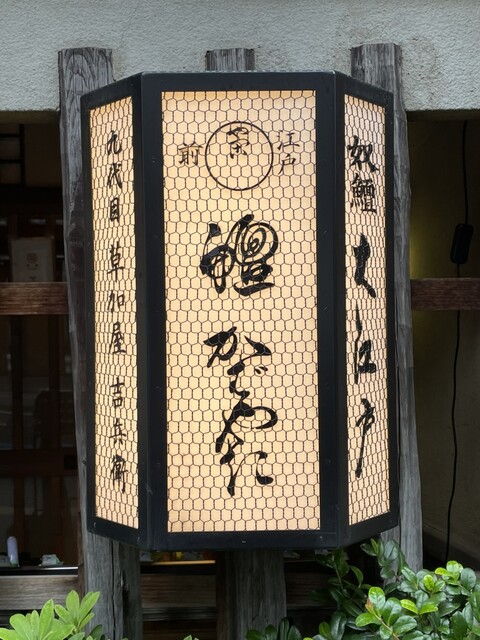 奴鱣 大江戸
江戸
前
鱣 かばやき
九代目 草加屋 吉兵衛